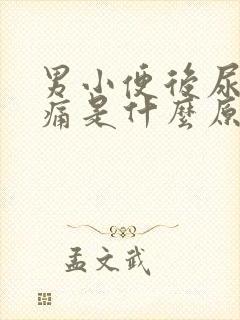 男小便后尿
痛是什麼原
孟文武